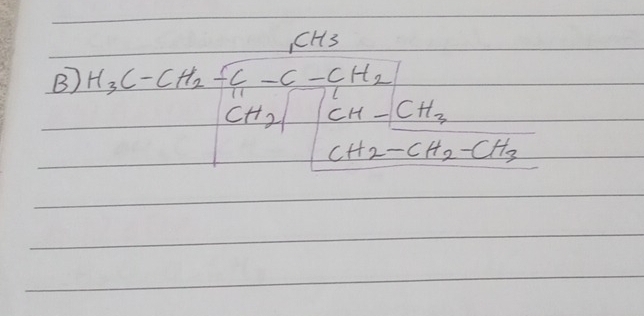 CH3
B) H3C-CH2-C-C-CH2
CH2 CH-CH3
CH2-CH2-CH3